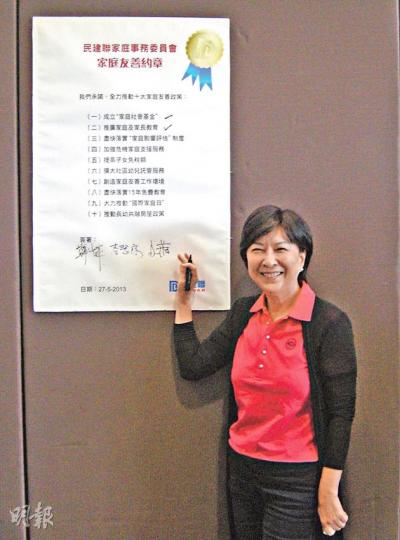 民建聯家庭事務委員會
家庭友善約章
我們承諾，全力推動十大家庭友善政策：
（一）成立"家庭社會基金"
（二）推廣家庭及家長教育
（三）盡快落實"家庭影響評估"制度
（四）加強危機家庭支援服務
（五）提高子女免稅額
（六）擴大社區幼兒託管服務
（七）創造家庭友善工作環境
（八）盡快落實15年免費教育
（九）大力推動"國際家庭日"
（十）推動長幼共融房屋政策
簽署：
日期：27-5-2013
明報